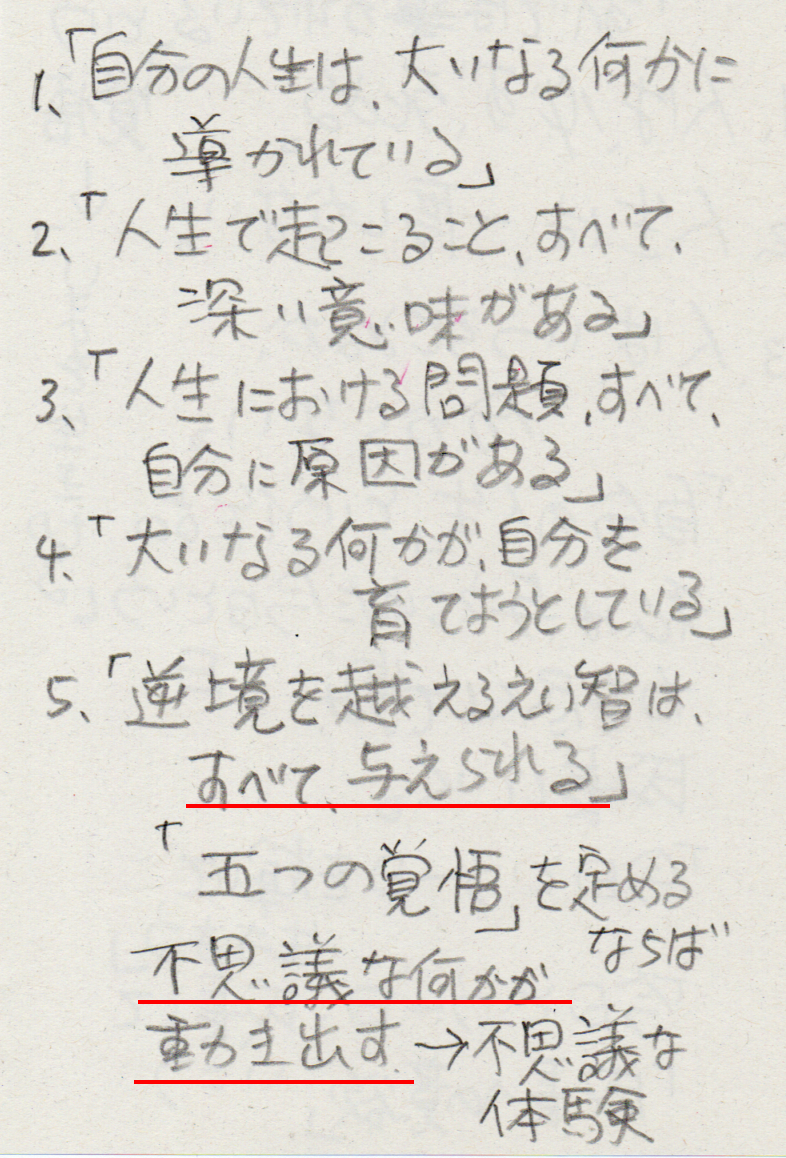 1、「自分の人生は、大いなる何かに
導かれている」
2、「人生で起こること、すべて、
深い意味がある」
3、「人生における問題、すべて、
自分に原因がある」
4、「大いなる何かが、自分を
育てようとしている」
5、「逆境を越えるえい智は、
すべて、与えられる」
「五つの覚悟」を定める
ならば
不思議な何かが
動き出す→不思議な
体験